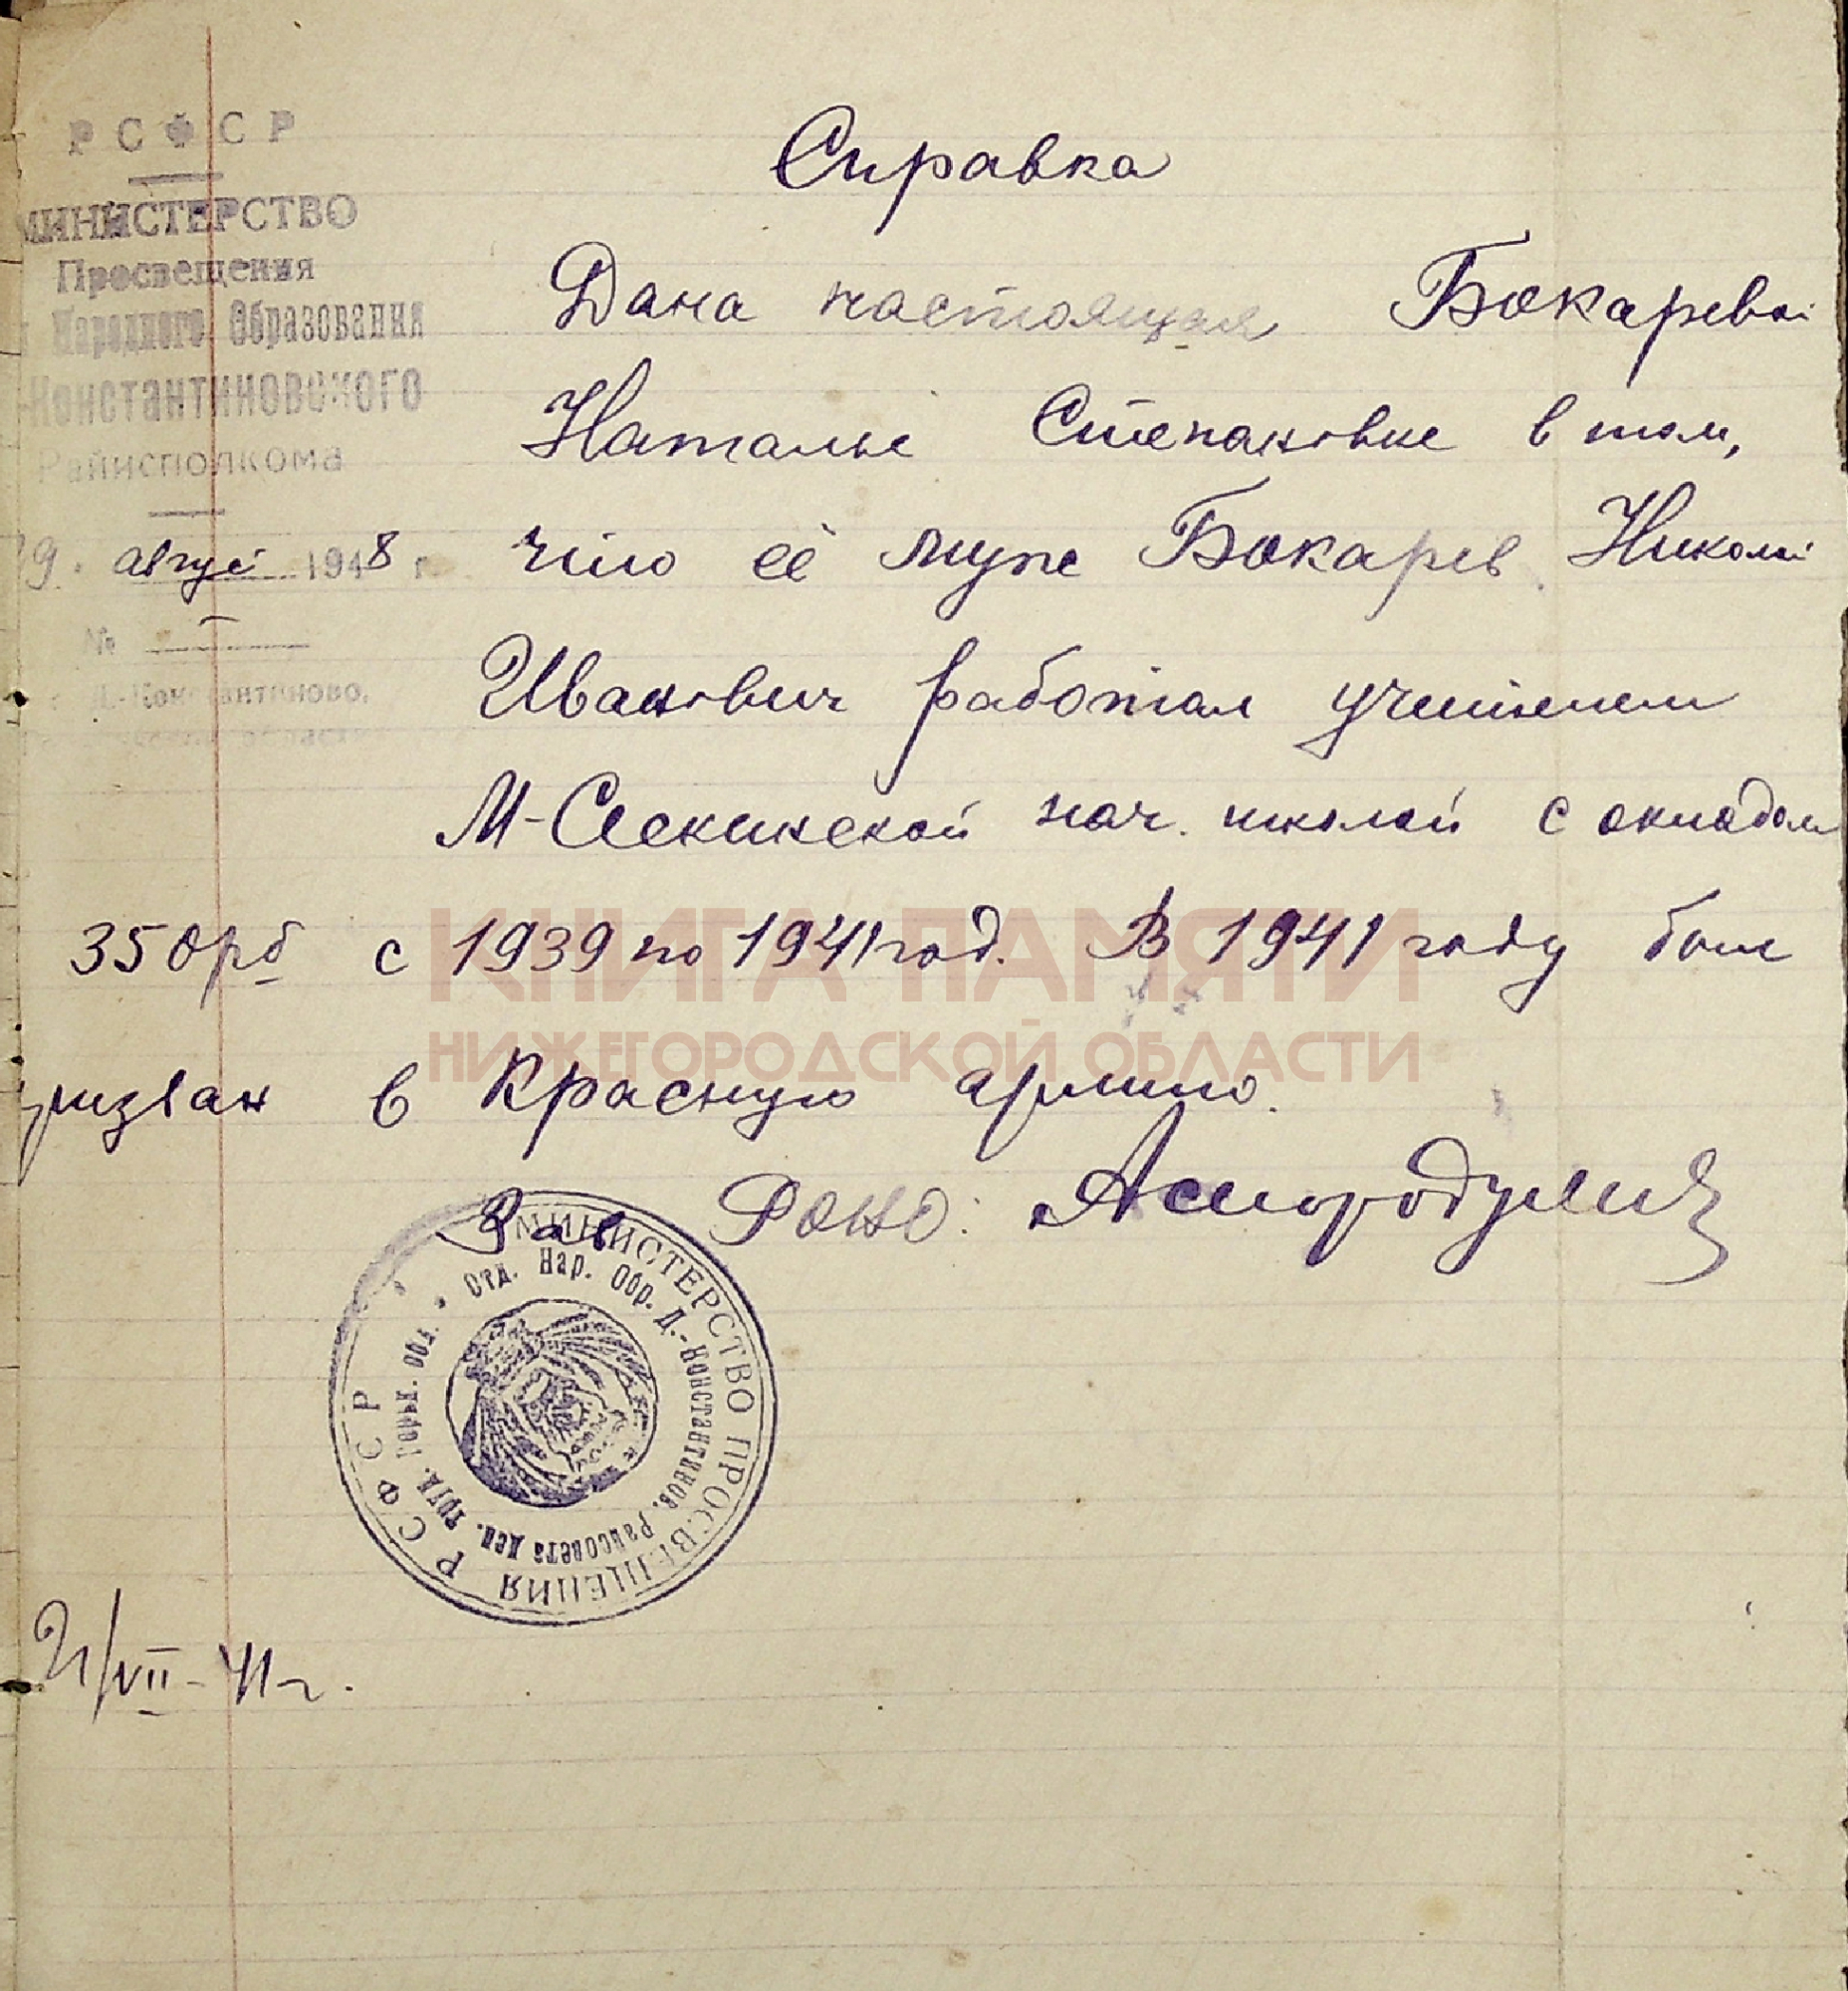 РСФСР
МИНИСТЕРСТВО
Просвещения
Народного Образования
Константиновского
Райисполкома
9. август 1948 г.
№
Д.-Константиново,
Справка
Дана настоящая Бокаревой
Наталье Степановне в том,
что её муж Бокарев Николай
Иванович работал учителем
М-Сескинской нач. школой с окладом
350 рб с 1939 по 1941 год. В 1941 году был
призван в Красную армию.
Зав РОНО:
МИНИСТЕРСТВО ПРОСВЕЩЕНИЯ РСФСР
Отд. Нар. Обр. Д.-Константинов. Райсовета деп. труд. Горьк. обл.
21/VII-41 г.
КНИГА ПАМЯТИ
НИЖЕГОРОДСКОЙ ОБЛАСТИ